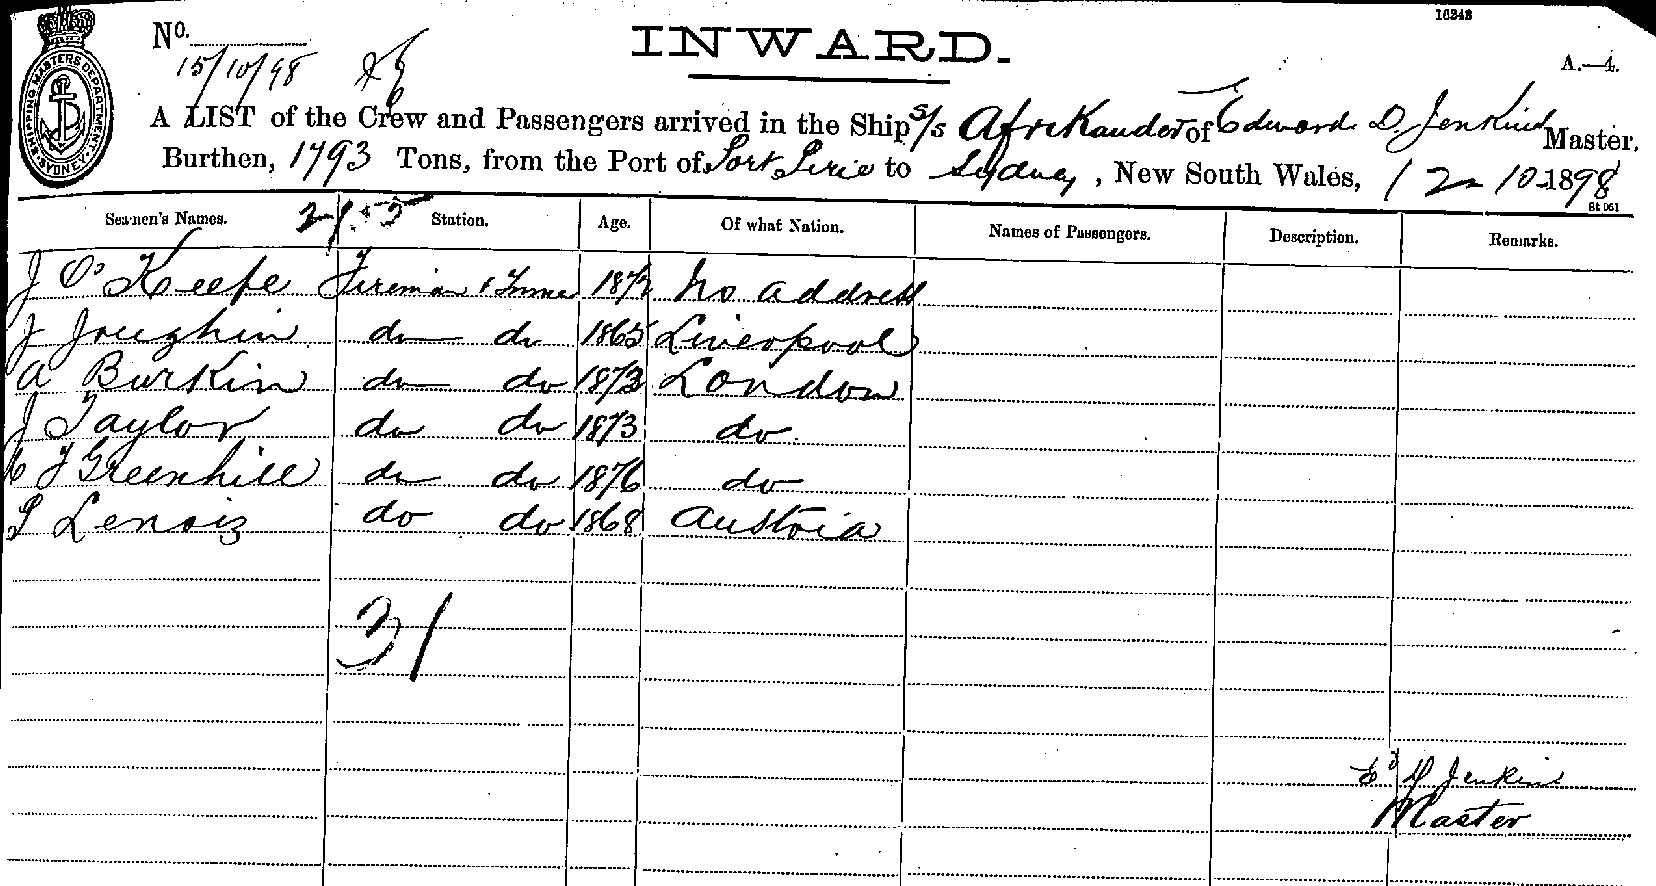 16343
No.
INWARD.
15/10/98
A.—4.
SHIPPING MASTERS DEPARTMENT SYDNEY
A LIST of the Crew and Passengers arrived in the Ship s/s Afrikander of Edward D. Jenkins Master,
Burthen, 1793 Tons, from the Port of Port Pirie to Sydney, New South Wales, 12-10-1898
St 061
Seamen's Names. Station. Age. Of what Nation. Names of Passengers. Description. Remarks.
J O'Keefe Fireman & Trimr 1872 No address
J Joughin do do 1865 Liverpool
A Burkin do do 1873 London
J Taylor do do 1873 do
C J Greenhill do do 1876 do
do do 1868 Austria
31
Ed D Jenkins
Master